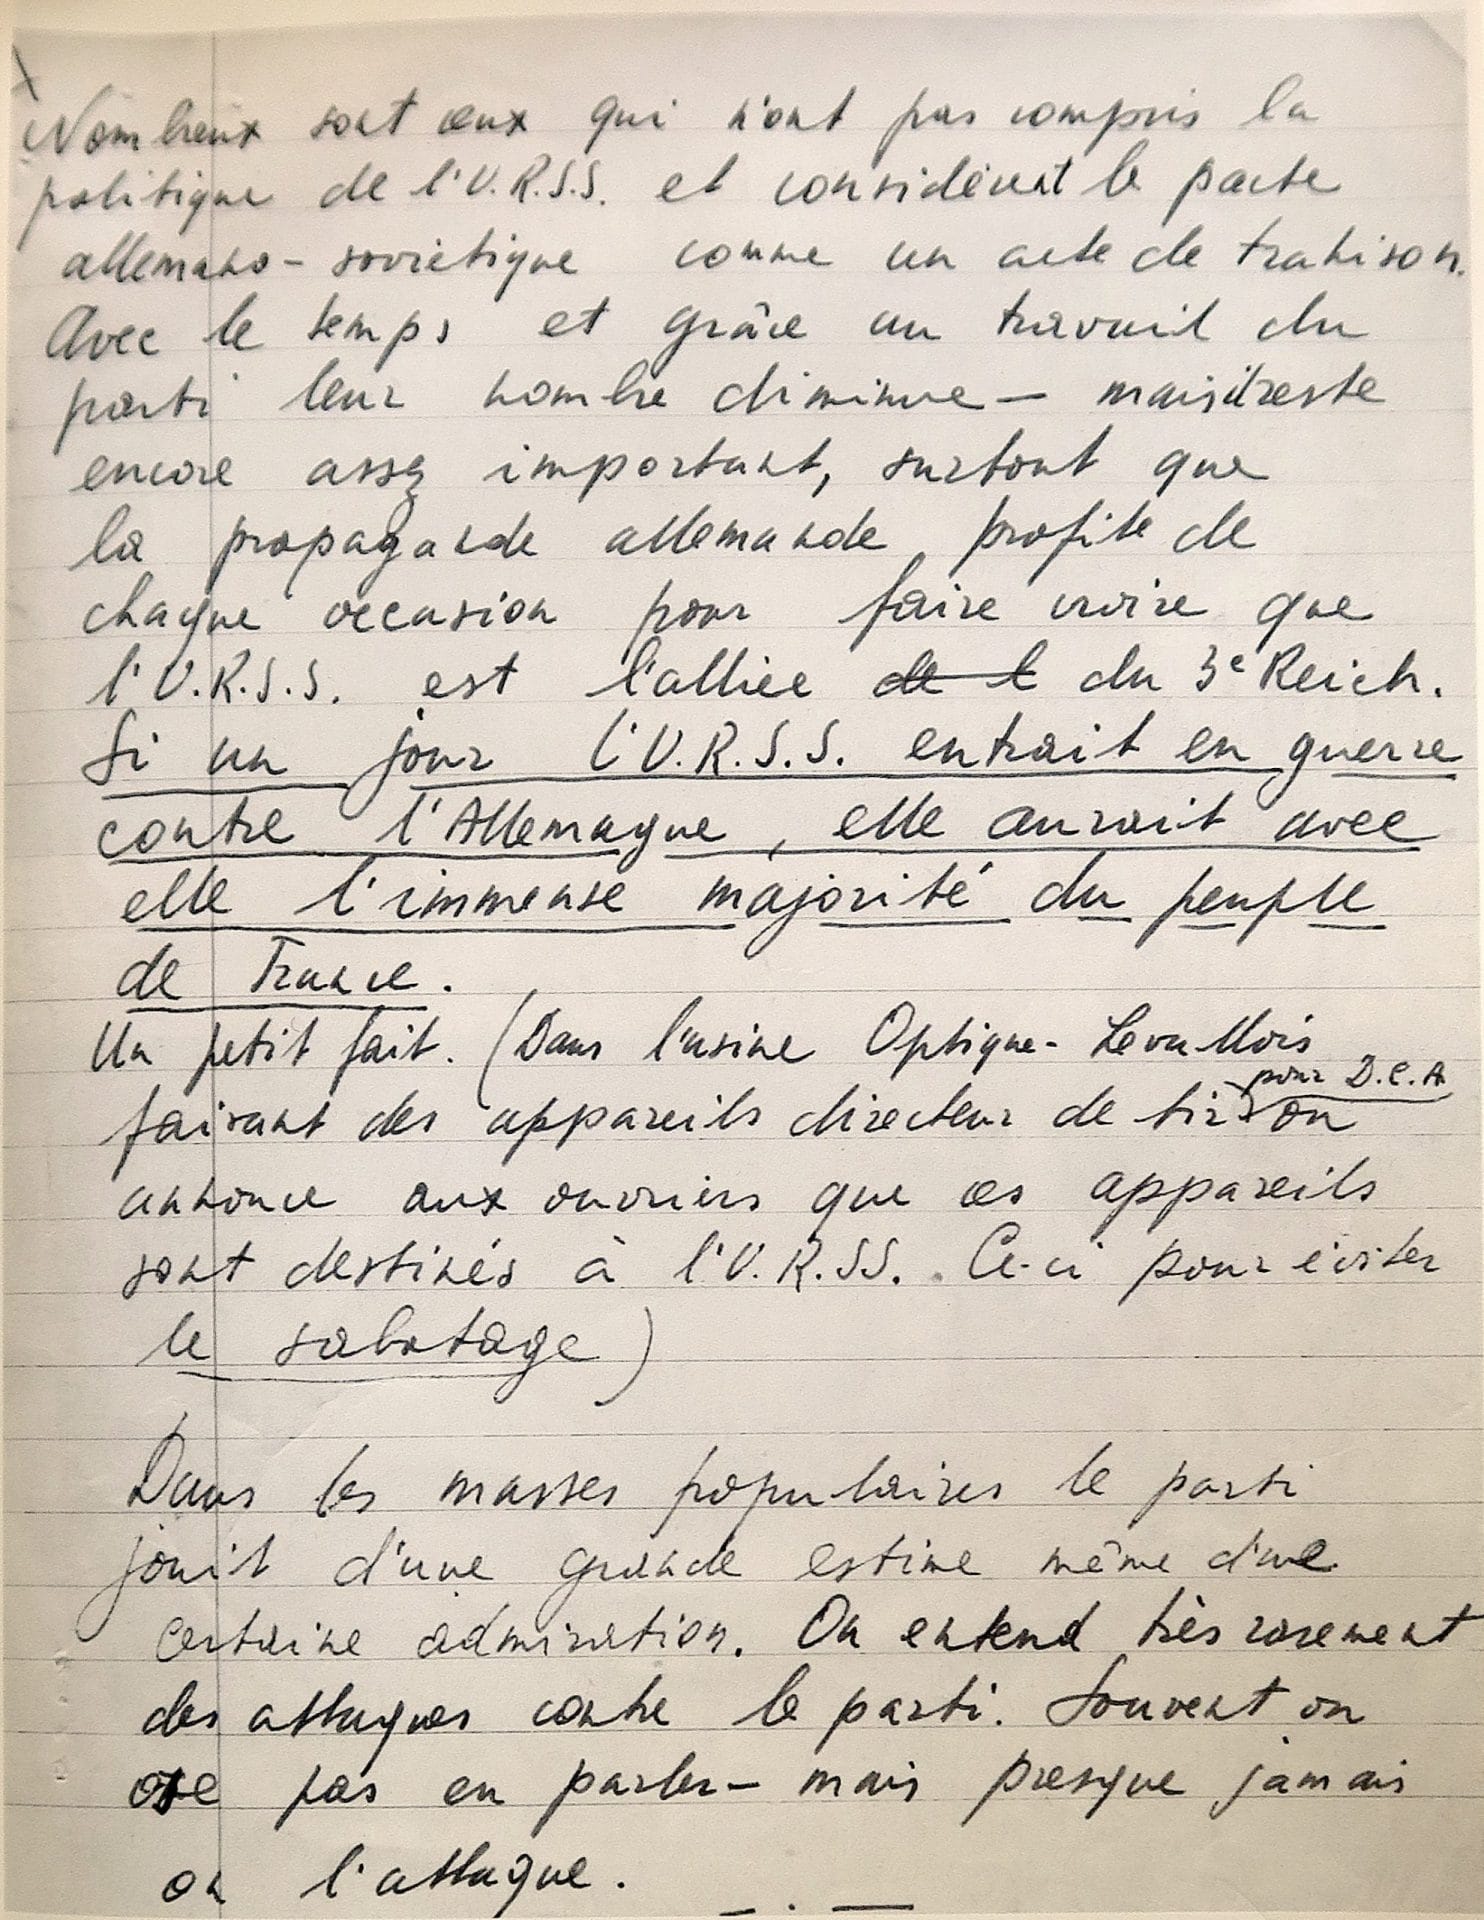 Nombreux sont ceux qui n'ont pas compris la
politique de l'U.R.S.S. et considèrent le pacte
allemano-soviétique comme un acte de trahison.
Avec le temps et grâce au travail du
parti leur nombre diminue — mais il reste
encore assez important, surtout que
la propagande allemande profite de
chaque occasion pour faire croire que
l'U.R.S.S. est l'alliée de l du 3e Reich.
Si un jour l'U.R.S.S. entrait en guerre
contre l'Allemagne, elle aurait avec
elle l'immense majorité du peuple
de France.
Un petit fait. (Dans l'usine Optique-Levallois
pour D.C.A
faisant des appareils directeur de tir on
annonce aux ouvriers que ces appareils
sont destinés à l'U.R.SS. Ce-ci pour éviter
le sabotage)
Dans les masses populaires le parti
jouit d'une grande estime même d'une
certaine admiration. On entend très rarement
des attaques contre le parti. Souvent on
ose pas en parler — mais presque jamais
on l'attaque.